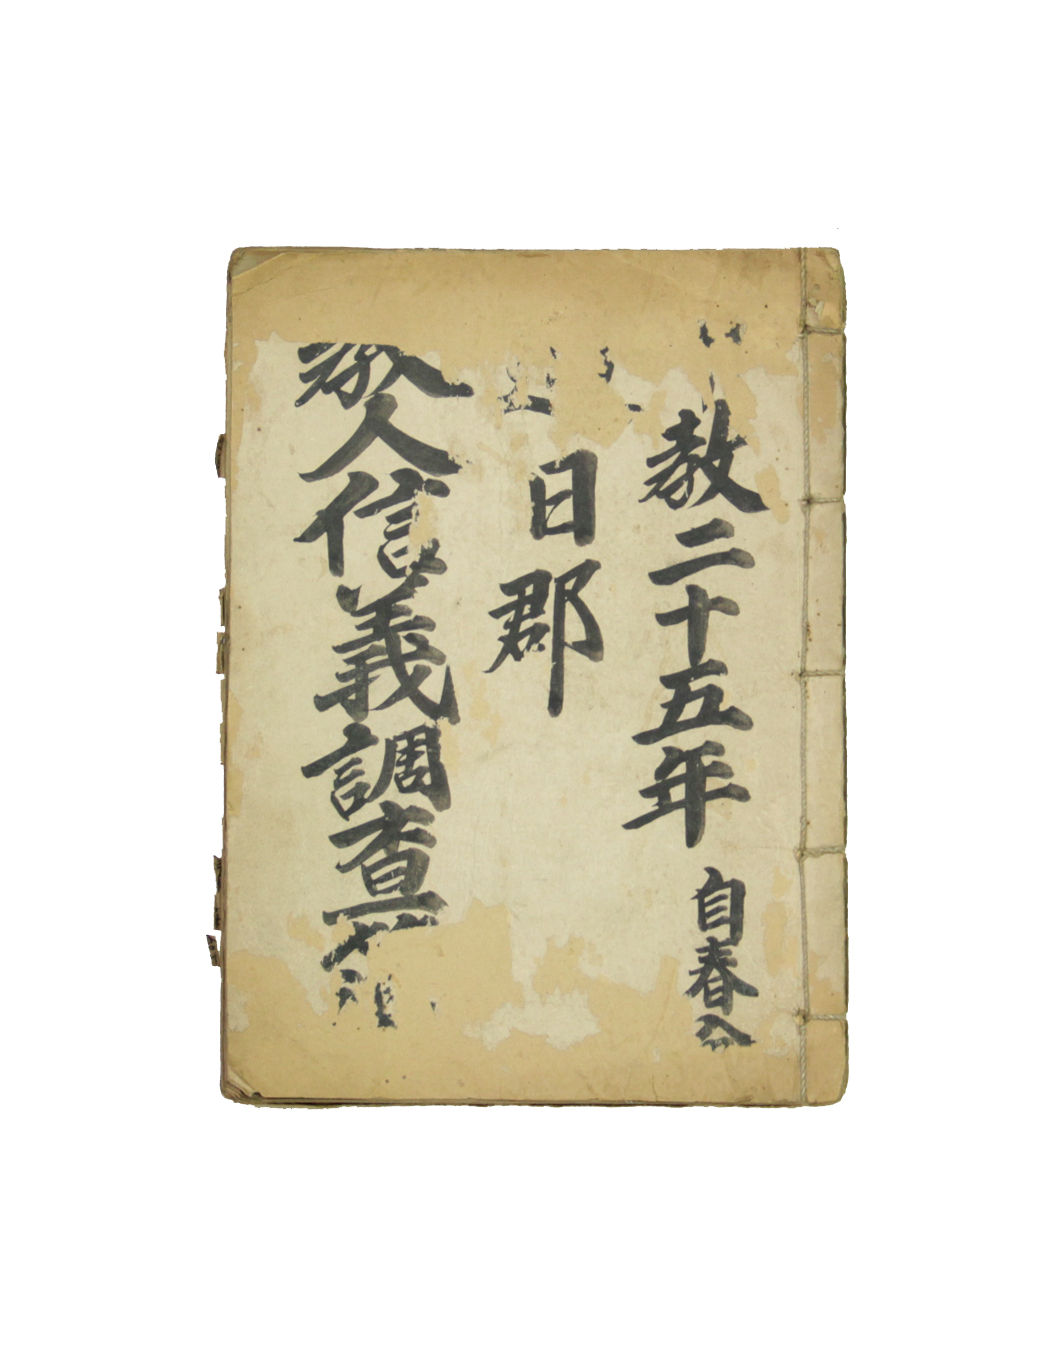 教二十五年 自春
日郡
教人信義調查